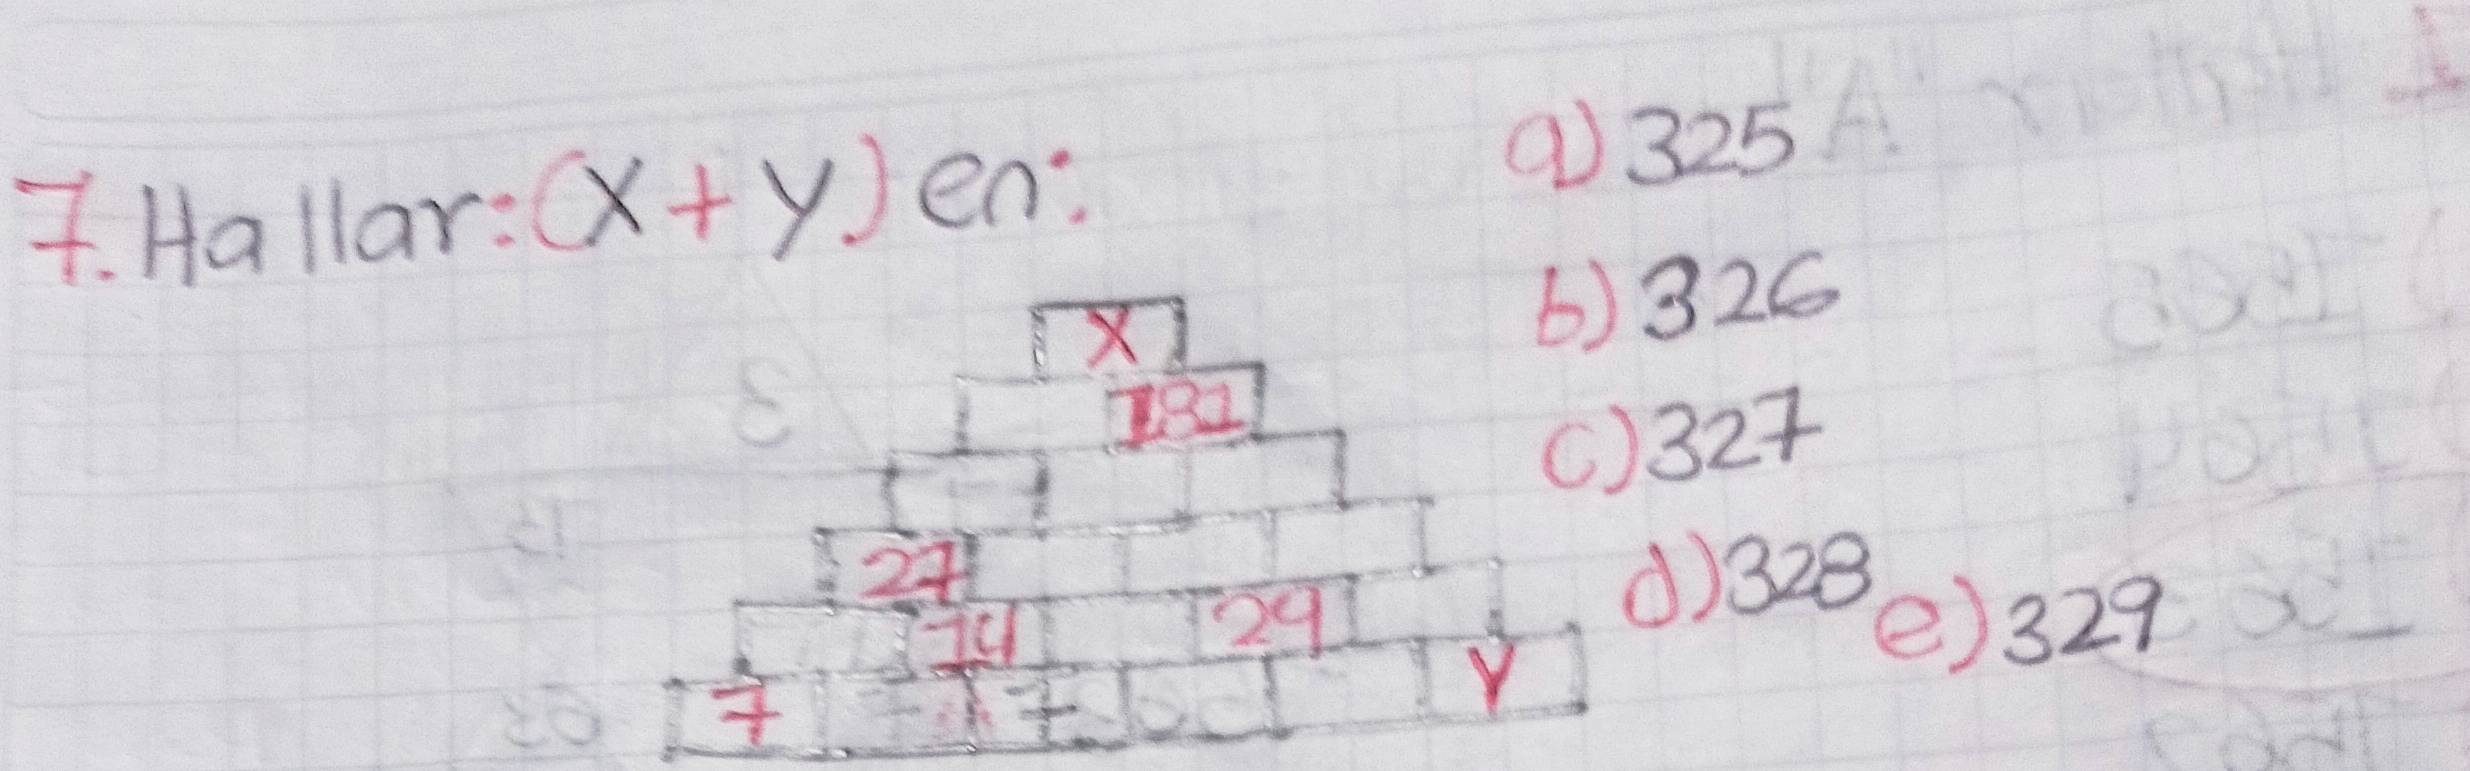 7. Hallar: (x + y) en:
a) 325
b) 326
c) 327
d) 328
e) 329
X
181
27
14 29
7 7 Y